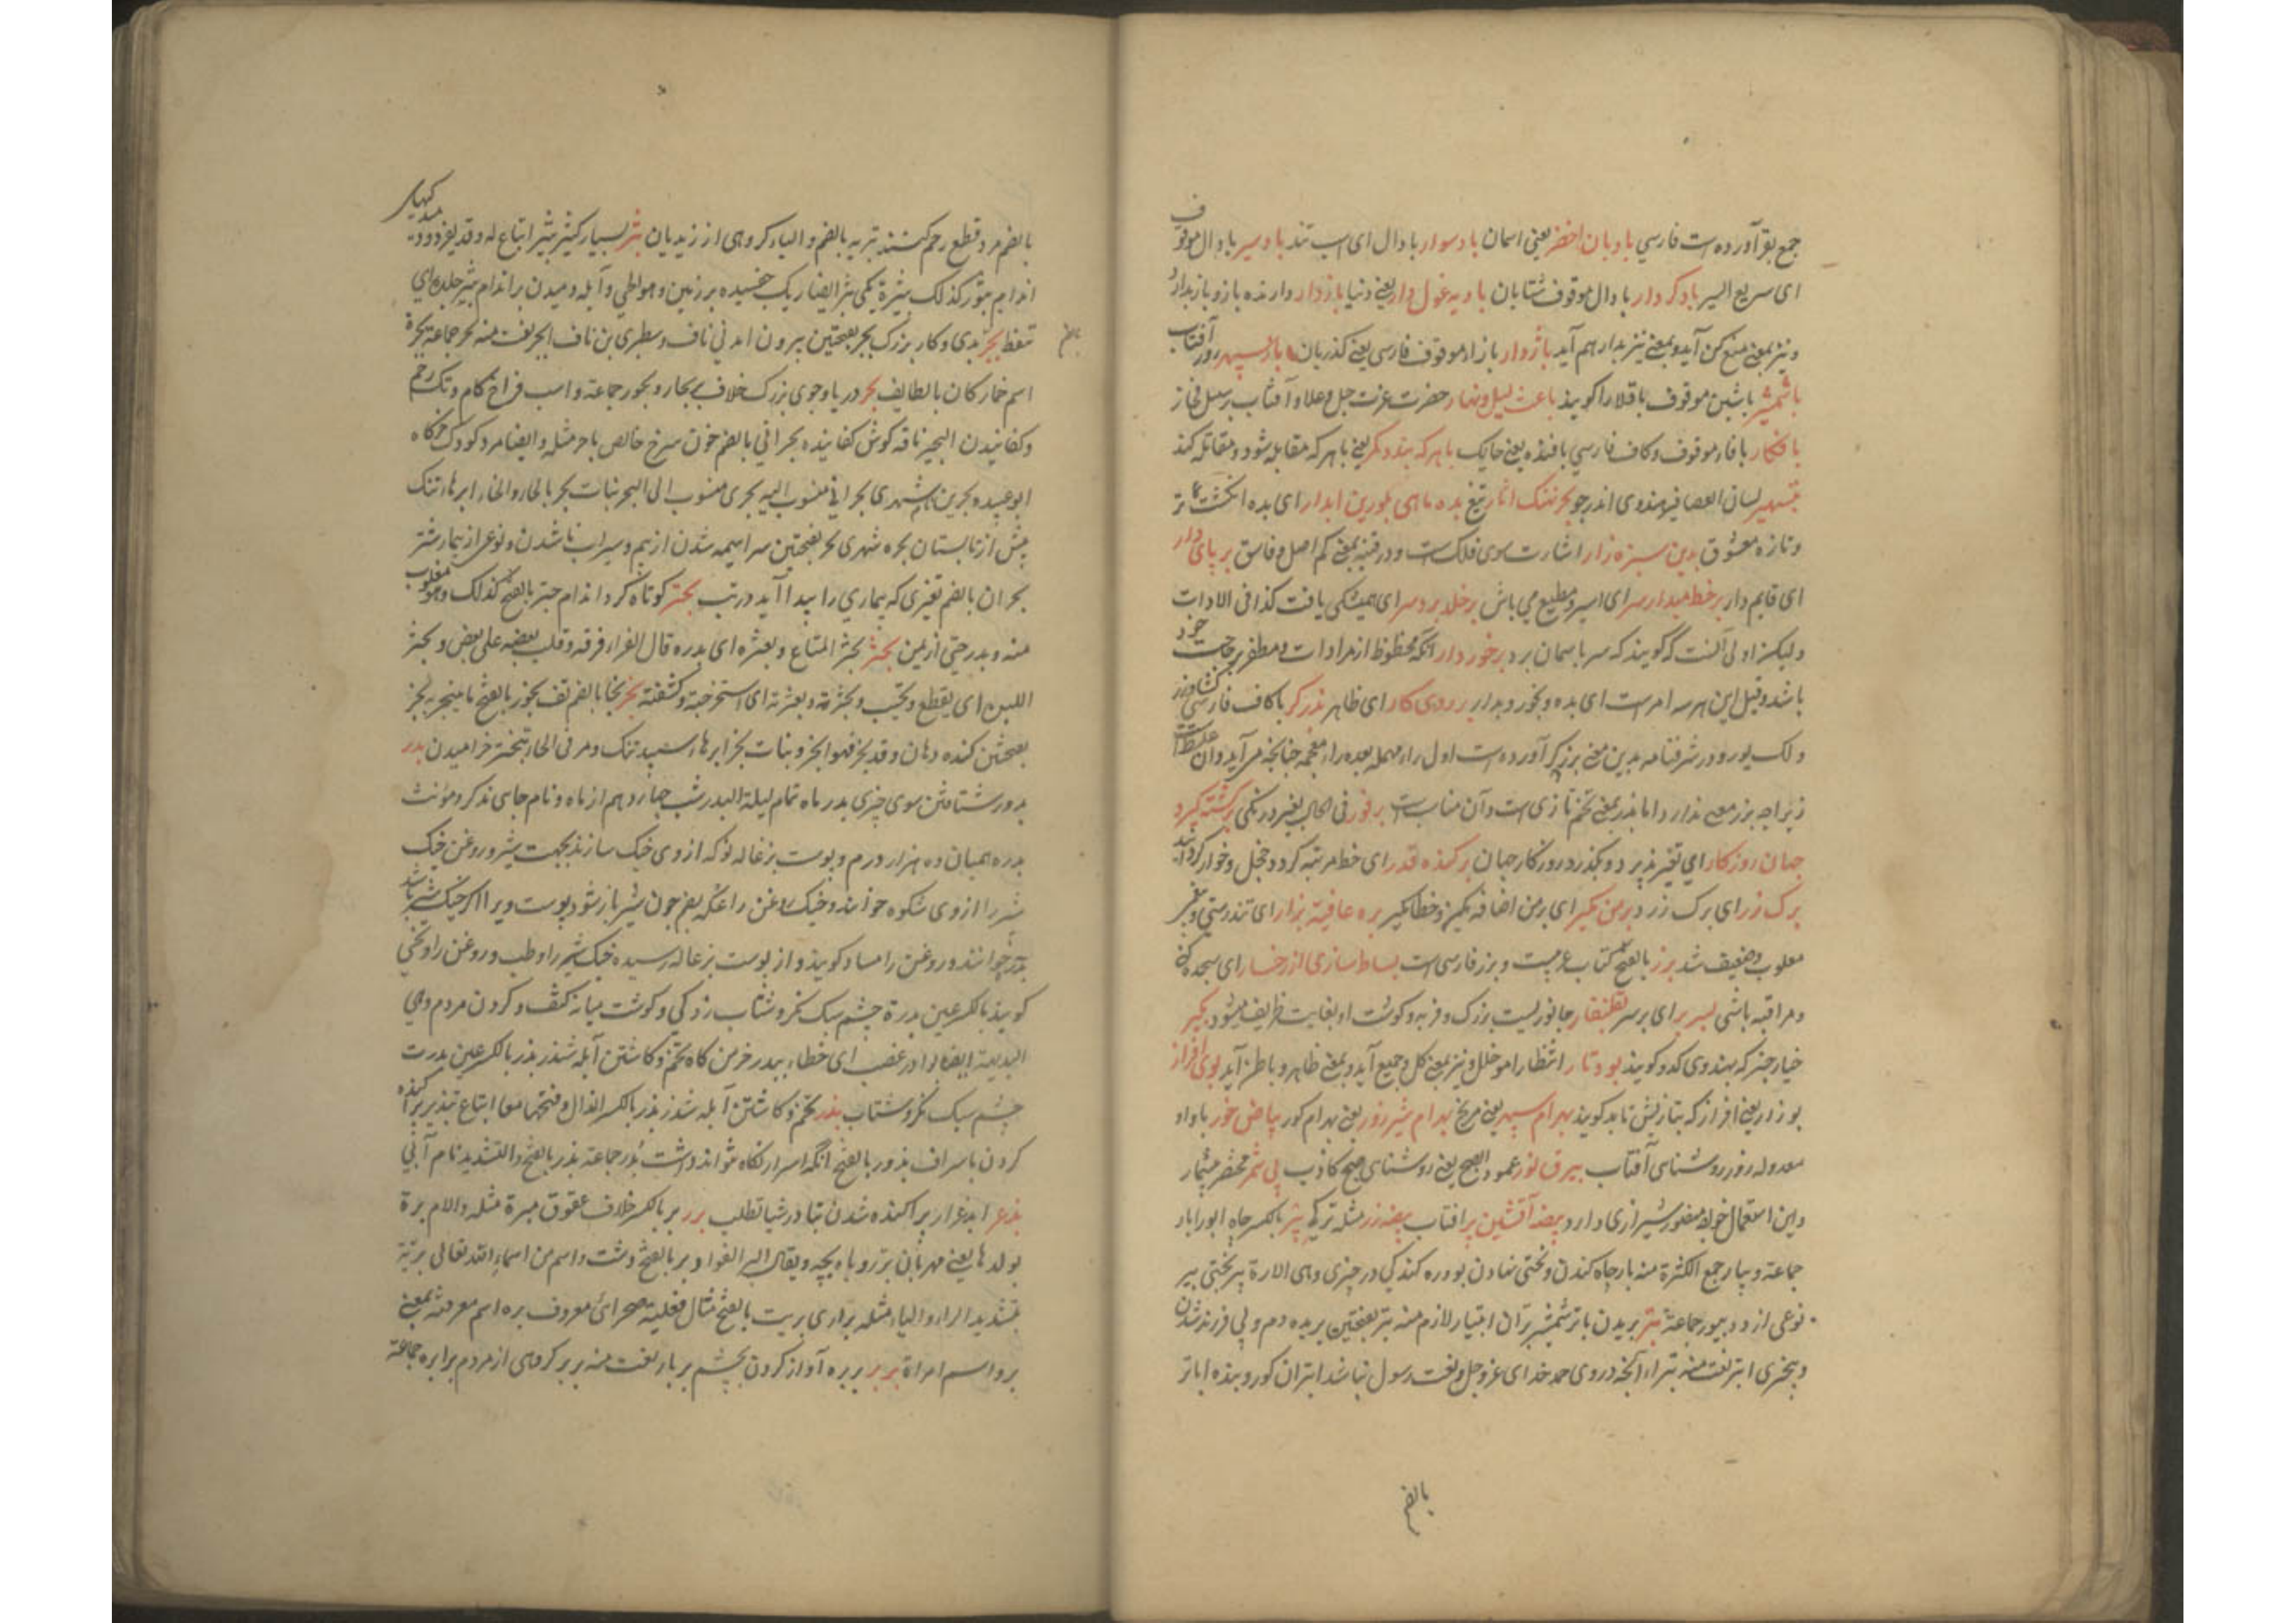 جمع بقر آورده است فارسی بادبان اخضر یعنی اسمان باد سوار با دال ای اسب تند باد سیر با دال موقوف
ای سریع السیر باد کردار با دال موقوف شتابان بادیه غول دار یعنی دنیا بازدار دارنده باز و باز بدار
و نیز بمعنی منع کن آید و بمعنی نیز بدار هم آید باژدار با زاء موقوف فارسی یعنی گذربان باز سپهر روز آفتاب
باشمشیر باشین موقوف باقلا را کویند باعث لیل و نهار حضرت عزت جل و علا و آفتاب بر سبیل مجاز
بافکار با فاء موقوف و کاف فارسی بافنده یعنی حایک با هر که بندد کمر یعنی با هر که مقابله شود و مقاتله کند
لسان العصافیر هندوی اندرجو بحر نهنک اثار تیغ بده ماهی بلورین ابدار ای بده انکشت تر
و تازه معشوق بدین سبزه زار اشارت سوی فلک است و در قنیه بمعنی کم اصل و فاسق بر پای دار
ای قایم دار بر خط میدار سر ای اسیر و مطیع می باش بر خلد برد سر ای همیشگی یافت کذا فی الادات
ولیکن اولی آنست که گویند که سر باسمان برد برخوردار انکه محظوظ از مرادات و مظفر بر حاجت خود
باشد و قیل این هر سه امر است ای بده و بخور و بدار بر روی کار ای ظاهر بذرکر با کاف فارسی کشاورز
و در شرفنامه بدین معنی برزکر آورده است اول راء مهمله بعده زاء معجمه چنانچه می آید و آن غلط است
زیراچه بزر معنی ندارد اما بذر بمعنی تخم تازی است و آن مناسبت بر فور فی الحال بغیر درنکی برکشته کیرد
جهان روزکار ای تغیر پذیرد و بگذرد روزکار جهان برکنده قدر ای خط مرتبه کرد و خجل و خوار کرد
برک زر ای برک زرد بر من مکیر ای بر من اضافه مکن و خطا مکیر بره عافیة بزار ای تندرستی و
مغلوب و ضعیف شد برز بالفتح کتاب عربیست و برز فارسی است بساط سازی از رخسار ای سجده کنی
و مراقبه باشی بسر بر ای بر سر بقلنقار جانوریست بزرک و فربه و کوشت او بغایت ظریف میشود بکیر
خیار چنبر که هندوی ککرو کویند بود تار انتظار امر خلل و نیز بمعنی کل و جمیع آید و بمعنی ظاهر و باطن آید بوی افزار
بوزار یعنی افزار که بتازیش تابل کویند بهرام سپهر یعنی مریخ بهرام شیر زور یعنی بهرام کور بیاض خور با واو
معدوله روز روشنای آفتاب بیرق نور عمود الصبح یعنی روشنای صبح کاذب بی ثمر مختصر بیشمار
و این استعمال خواجه مغفور شیرازی دارد بیضه آتشین پر افتاب بیضه زر مثله ترکی بئر بالکسر چاه ابور ابار
جماعة و بیار جمع الکثرة منه بار چاه کندن و نختی نهادن بوره کندکی در چیزی و هی الارة بیر نختی ببر
نوعی از دد ببور جماعة بتر بریدن باتر شمشیر بران ابتیار لازم منه بتر بفتحتین بریده دم و بی فرزند شدن
و بچیزی ابتر نعت منه بتراء انچه در وی حمد خدای عز و جل و نعت رسول نباشد ابتران کور و بنده اباتر
بالضم
بالضم مرد قطع رحم کننده بتریه بالضم و الیاء کروهی از زیدیان بثر بسیار کثیر بثیر اتباع له و قد یفرد و
اندام بثور کذلک بثرة یکی بثر ایضا ریک و آبله دمیدن بر اندام بثیر جلده ای
تنفط بجر بدی و کار بزرک بجر بفتحتین بیرون امدنی ناف و سطبری بن ناف ابجر نعت منه بجر جماعة بجرة
اسم خمار کان بالطایف بحر دریا و جوی بزرک خلاف بر بحار و بحور جماعة و اسب فراخ کام و تک رحم
و کفانیدن البحیر ناقه کوش کفانیده بحرانی بالضم خون سرخ خالص باحر مثله و ایضا مرد کودک
ابو عبیده بحرین شهری بحرانی منسوب الیه بحری منسوب الی البحر بنات بحر بالحاء و الخاء ابرها تنک
پیش از تابستان بحره شهری بحر بفتحتین سراسیمه شدن از بیم و سیراب ناشدن و نوعی از بیماری شتر
بحران بالضم تغیری که بیماری را پیدا آید در تب بحتر کوتاه کرد اندام حبتر بالفتح کذلک و هو مقلوب
منه و بدر حتی از یمن بحثر بحثر المتاع و بعثره ای بدره قال الفراء فرقه و قلب بعضه علی بعض و بحثر
اللبن ای یقطع و تحبب و بحثرته و بعثرته ای استخرجته و کشفته بخر بخار بالضم تف بخور بالفتح ما یتبخر به بخر
بفتحتین کنده دهان و قد بخر فهو ابخر و بنات بخر ابرها سپید تنک و مر فی الحاء تبختر خرامیدن بدر
بدور شتافتن سوی چیزی بدر ماه تمام لیلة البدر شب چهاردهم از ماه و نام جای مذکر و مؤنث
بدره همیان ده هزار درم و پوست بزغاله نو که از وی خیک سازند بجهت شیر و روغن خیک
شیر را از وی شکوه خوانند و خیک روغن را عکه یعنی چون شیر باز شود پوست ویرا اکر خیک شیر باشد
بدره خوانند و روغن را مساد کویند و از پوست بزغاله رسیده خیک شیر را وطب و روغن را و نحی
کویند بالکسر عین بدرة چشم سبک نکر و شتاب زدکی و کوشت میانه کتف و کردن مردم و هی
البدیهة ایضا بوادر غضب ای خطاء بیدر خرمن کاه
چشم سبک نکر و شتاب بذر تخم و کاشتن آبله شذر بذر بالکسر الذال و فتحهما معا اتباع تبذیر پراکنده
کردن باسراف بذور بالفتح انکه اسرار نکاه نتواند داشت بذر جماعة بذر بالفتح و التشدید نام آبی
بذعر ابذعرار پراکنده شدن برر بر بالکسر خلاف عقوق مبرة مثله و الام برة
بولدها یعنی مهربان بر روباه بچه و یقال البر الفواد و بر بالفتح دشت و اسم من اسماء الله تعالی بریة
بتشدید الراء و الیاء مثله براری بریت بالفتح مثال فعلیة صحرائی معروف بره اسم معرفة بمعنی
بر و اسم امراة بربر بربره آواز کردن بخشم بربار نعت منه بربر کروهی از مردم برابره جماعة